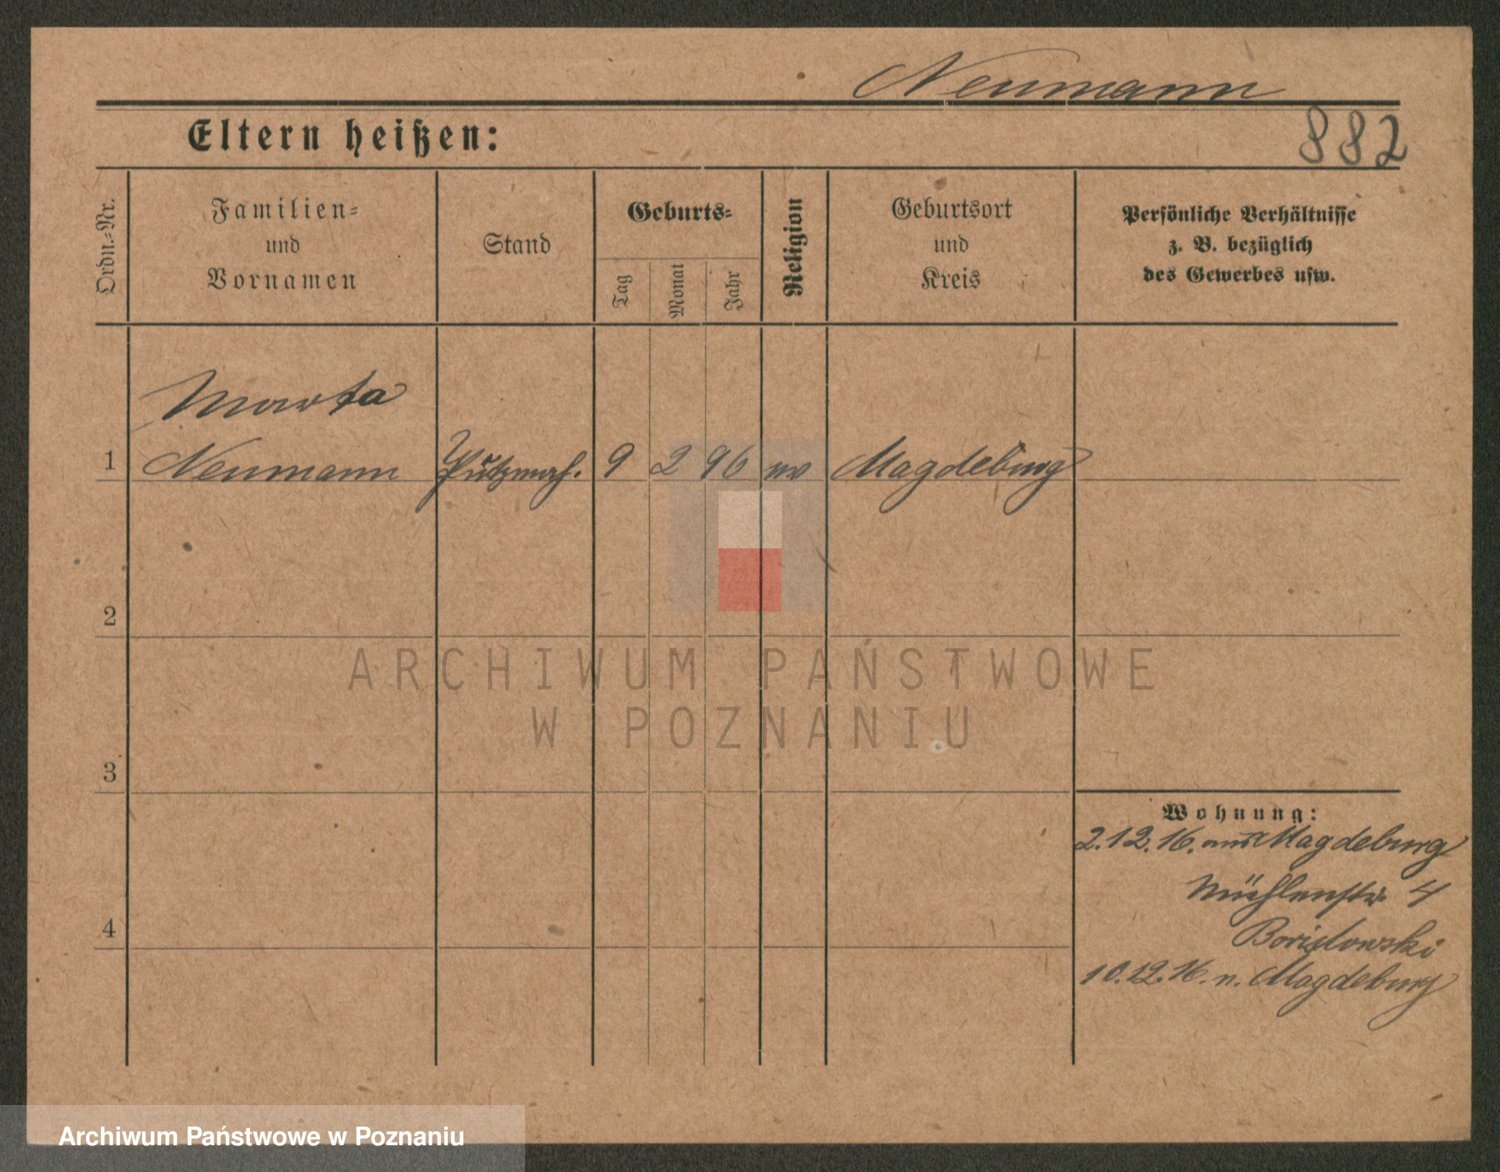 Neumann
882
Eltern heißen:
Ordn.-Nr.
Familien-
und
Vornamen
Stand
Geburts-
Tag
Monat
Jahr
Religion
Geburtsort
und
Kreis
Persönliche Verhältnisse
z. B. bezüglich
des Gewerbes usw.
Marta
1 Neumann Putzmach. 9 2 96 ev Magdeburg
2
3
4
Wohnung:
2.12.16. aus Magdeburg
Mühlenstr. 4
10.12.16. n. Magdeburg
ARCHIWUM PAŃSTWOWE
W POZNANIU
Archiwum Państwowe w Poznaniu